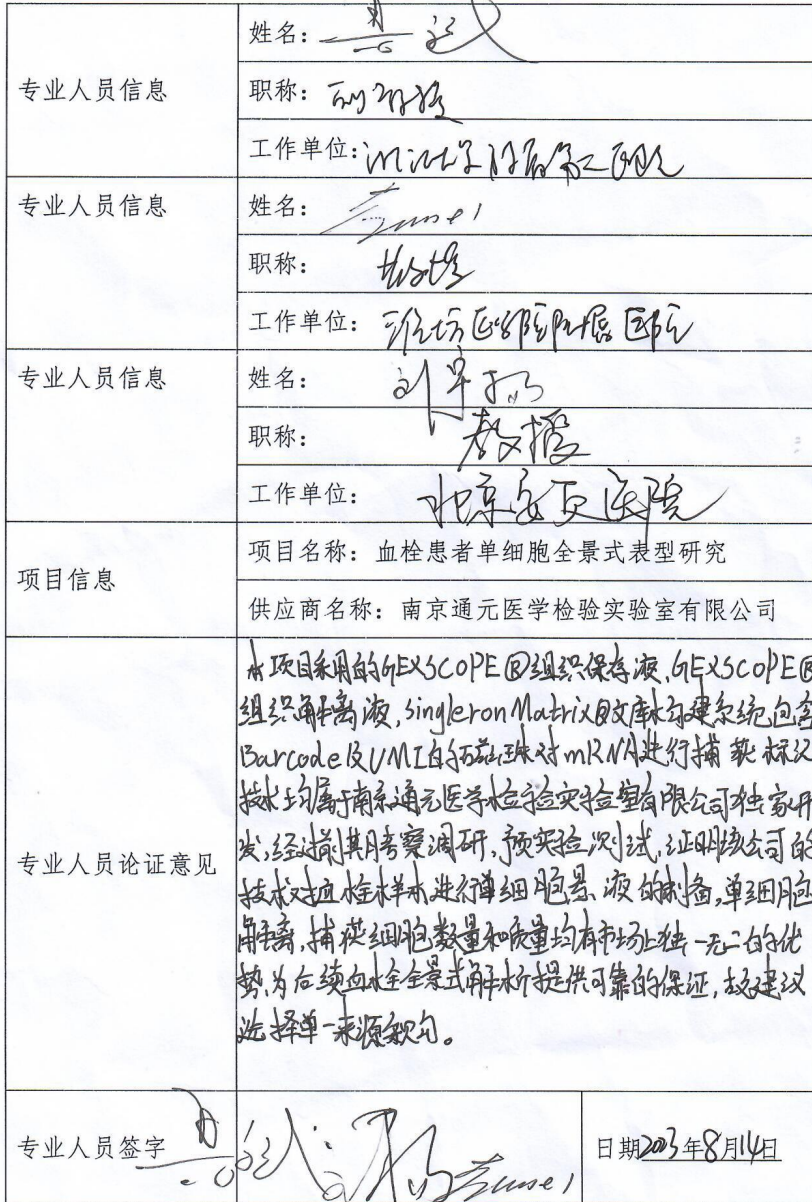 专业人员信息
姓名：
职称：副教授
工作单位：浙江大学附属第二医院
专业人员信息
姓名：
职称：教授
工作单位：潍坊医学院附属医院
专业人员信息
姓名：刘
职称：教授
工作单位：北京安贞医院
项目信息
项目名称：血栓患者单细胞全景式表型研究
供应商名称：南京通元医学检验实验室有限公司
专业人员论证意见
本项目采用的GEXSCOPE®组织保存液,GEXSCOPE®
组织解离液,singleron Matrix®文库构建系统,包含
Barcode及UMI的磁珠对mRNA进行捕获标记
技术均属于南京通元医学检验实验室有限公司独家开
发,经过前期考察调研,预实验测试,证明该公司的
技术对血栓样本进行单细胞悬液的制备,单细胞
解离,捕获细胞数量和质量均有市场上独一无二的优
势,为后续血栓全景式解析提供可靠的保证,故建议
选择单一来源采购。
专业人员签字
日期2023年8月14日